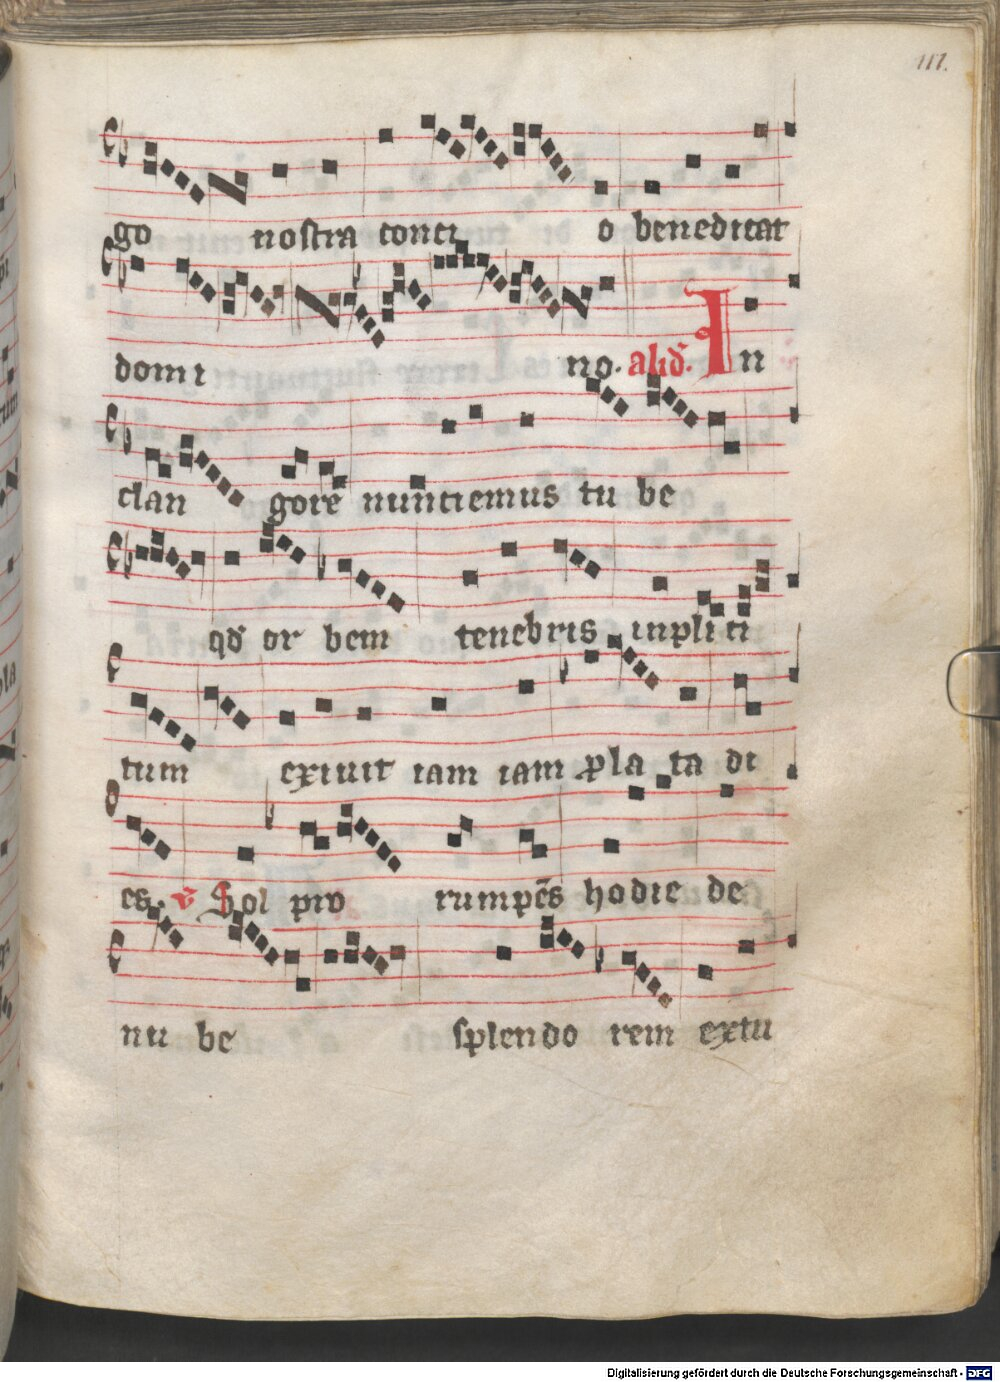 111.
go nostra conci o benedicat
domi no. aliđ. In
clan gore nunciemus tu be
qđ or bem tenebris inplici
tum exiuit iam iam ꝓla ta di
es. v̄ Sol pro rumpēs hodie de
nu be splendo rem extu
Digitalisierung gefördert durch die Deutsche Forschungsgemeinschaft - DFG